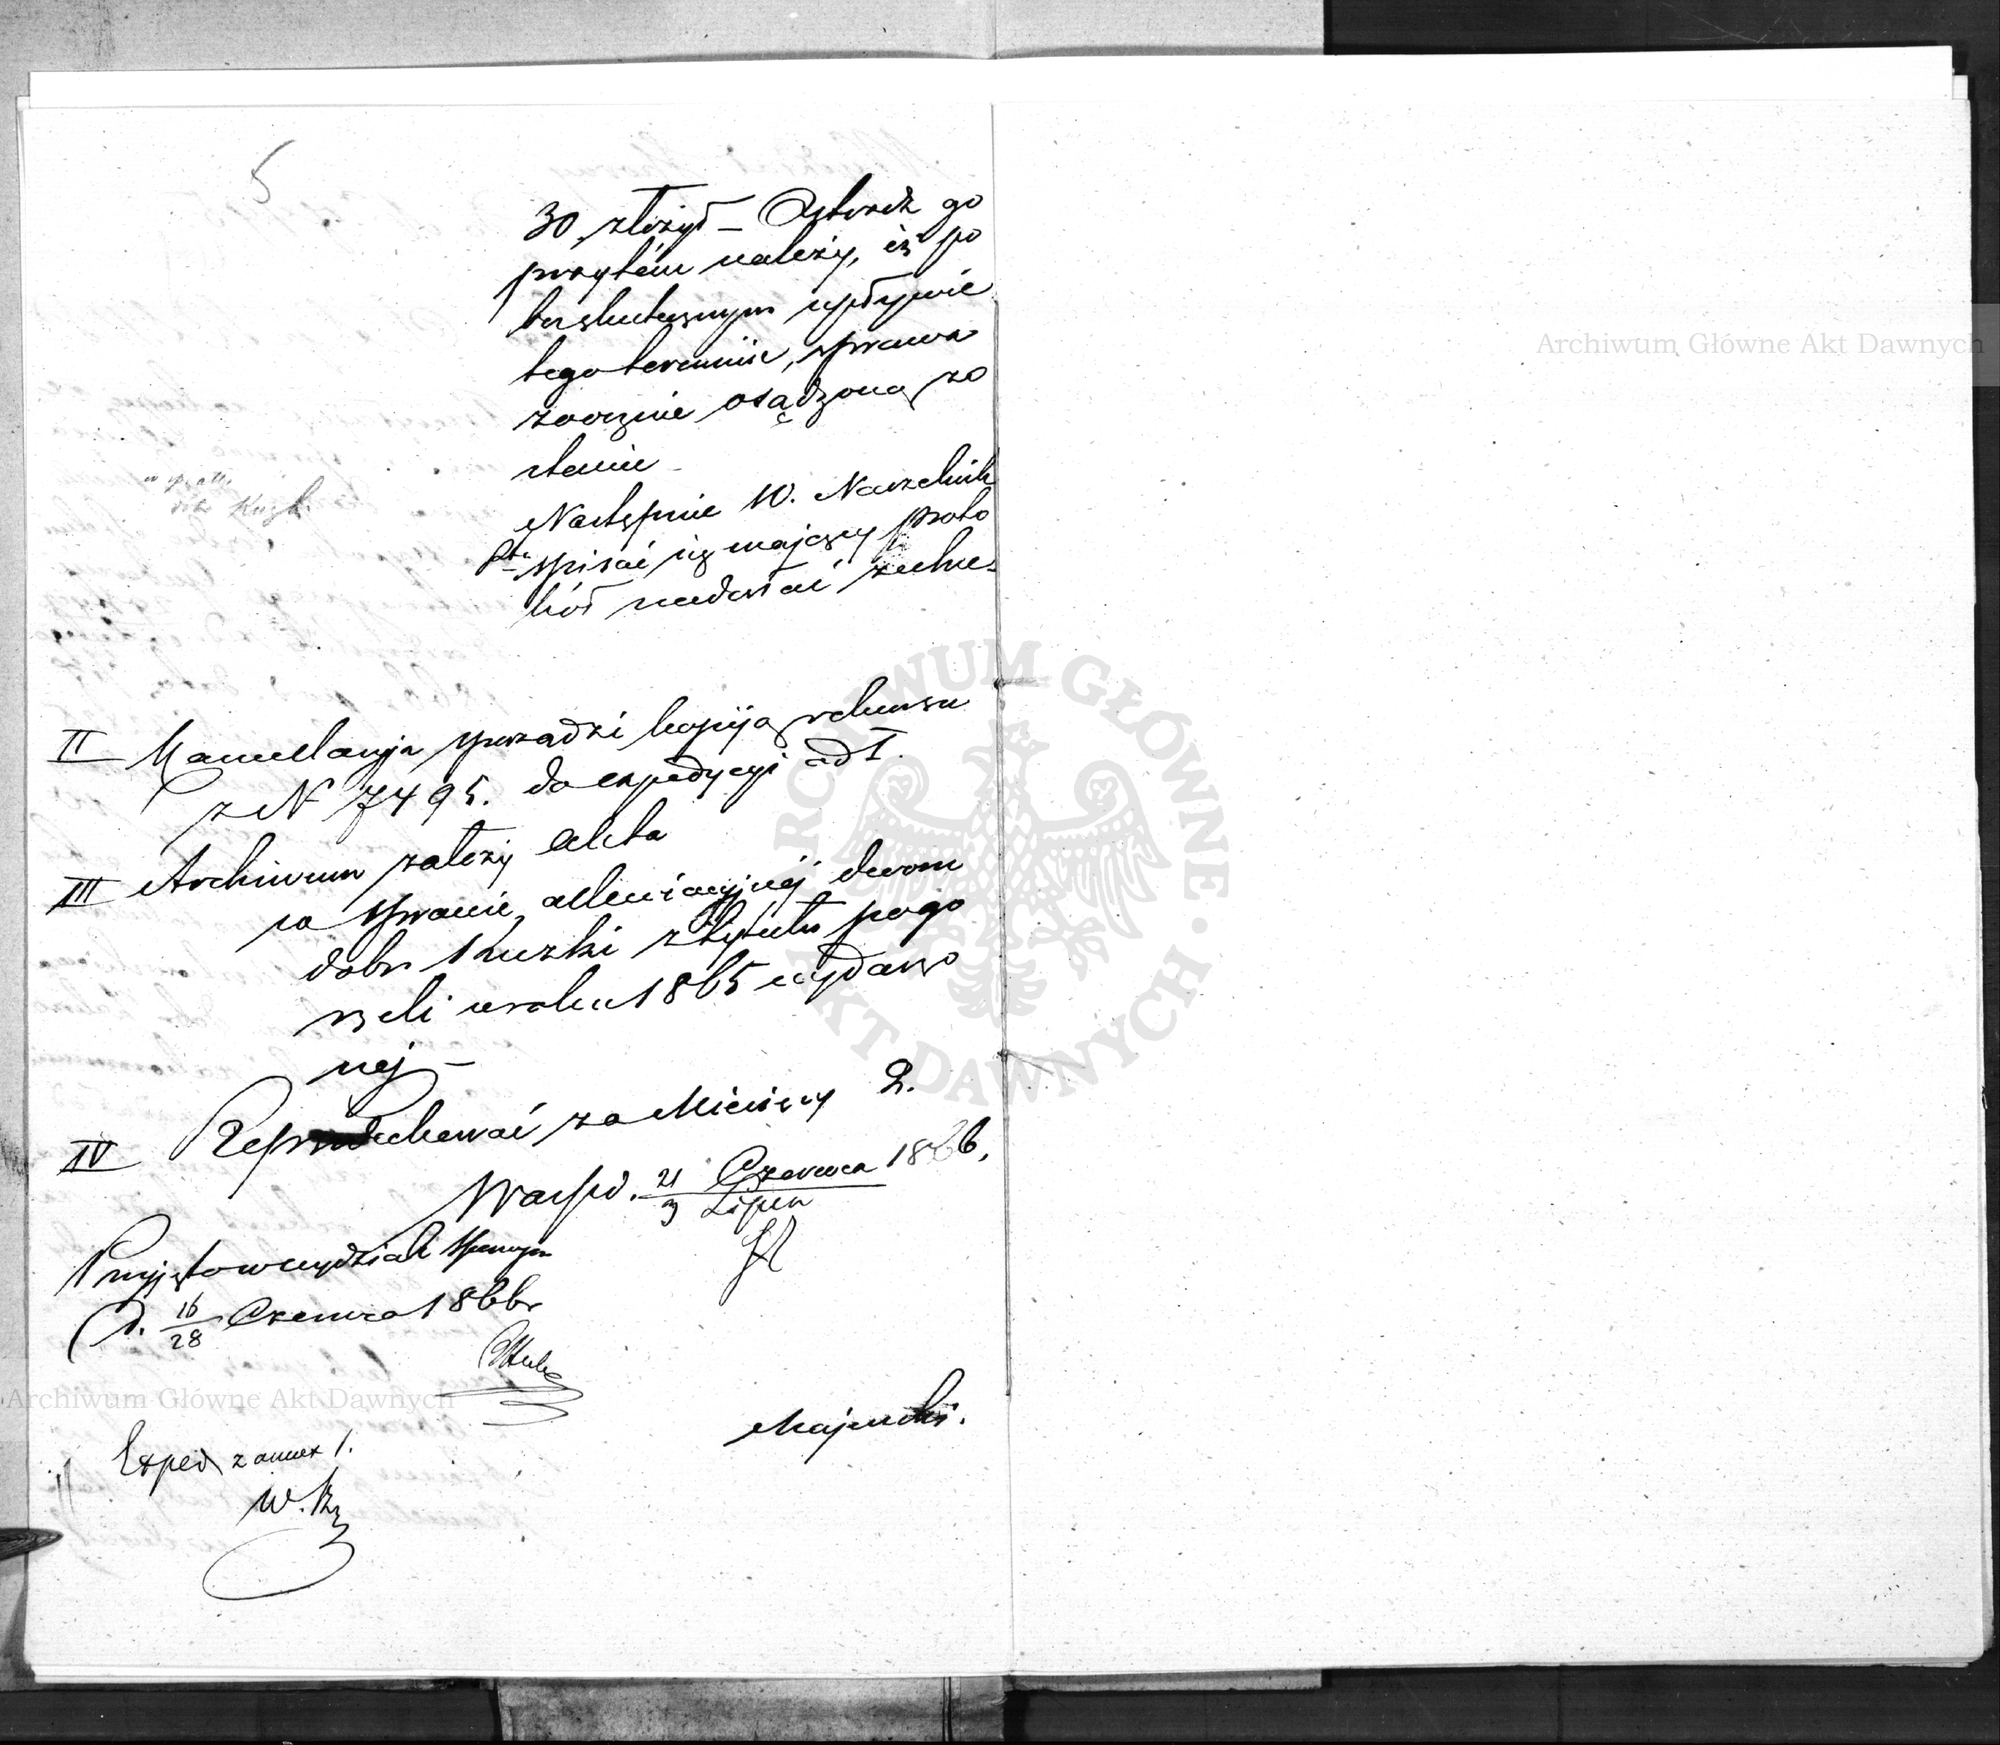 5
30 złożył – Ostrzedz go
przytém należy, iż po
bezskutecznym upływie
tego terminu, sprawa
zaocznie osądzoną zo
stanie –
Następnie W. Naczelnik
spisać się mający proto
kół nadesłać zechce.
II Kancellarya sporządzi kopiją rekursu
z N 7495. do expedycyi ad I.
III Archiwum załączy akta
w sprawie allewiacyjnéj dwom
dobr Kuzki z tytułu pogo
rzeli w roku 1865 wydarzo
nej –
IV Reprodukować za Miesięcy 2.
Warsz. 21/3 Czerwca/Lipca 1866.
Przyjęto w wydziale Spornym
d. 16/28 Czerwca 1866 r
Majewski.
Exped z annex 1.
W. Rz
Archiwum Główne Akt Dawnych
Archiwum Główne Akt Dawnych
ARCHIWUM GŁÓWNE AKT DAWNYCH